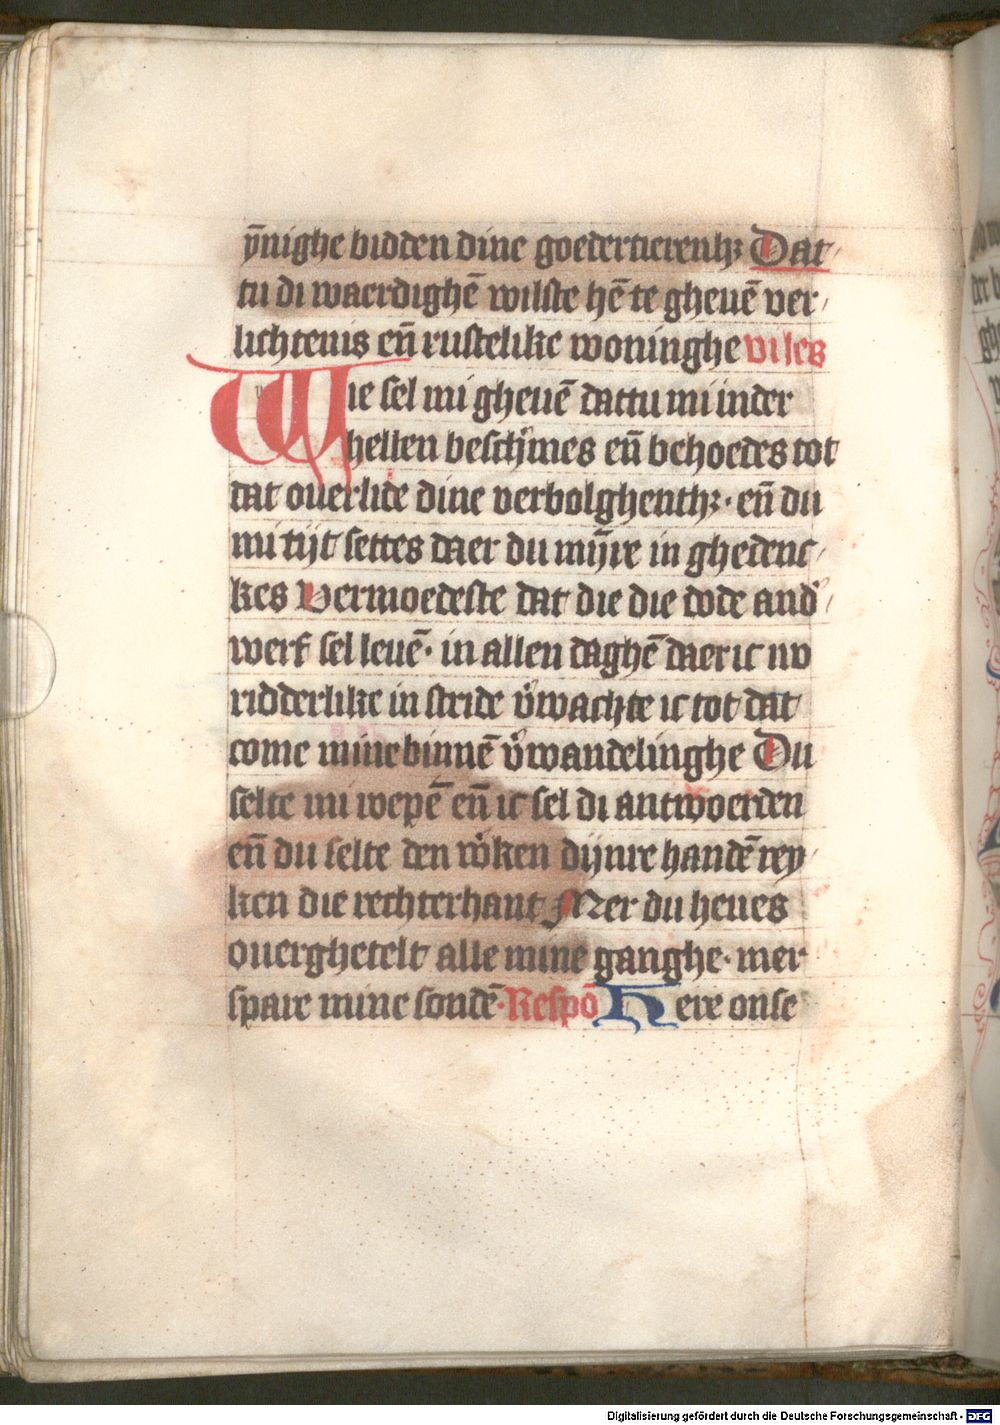 ȳnighe bidden dine goedertierenhꝫ Dat
tu di waerdighē wilste hē te gheuē ver
lichtenis eñ rustelike woninghe vi les
Wie sel mi gheuē dattu mi inder
hellen beschmes eñ behoedes tot
dat ouerlide dine verbolghenthꝫ · eñ du
mi tijt settes daer du mijre in ghedenc
kes Vermoedeste dat die die dode and
werf sel leuē · in allen daghē daer ic nv
ridderlike in stride v̓wachte ic tot dat
come mine binnē v̓wandelinghe Du
selte mi wepē eñ ic sel di antwoerden
eñ du selte den w̓ken dijnre handē rey
ken die rechterhant Mer du heues
ouerghetelt alle mine ganghe · mer
spare mine sondē · Respō Here onse
Digitalisierung gefördert durch die Deutsche Forschungsgemeinschaft - DFG